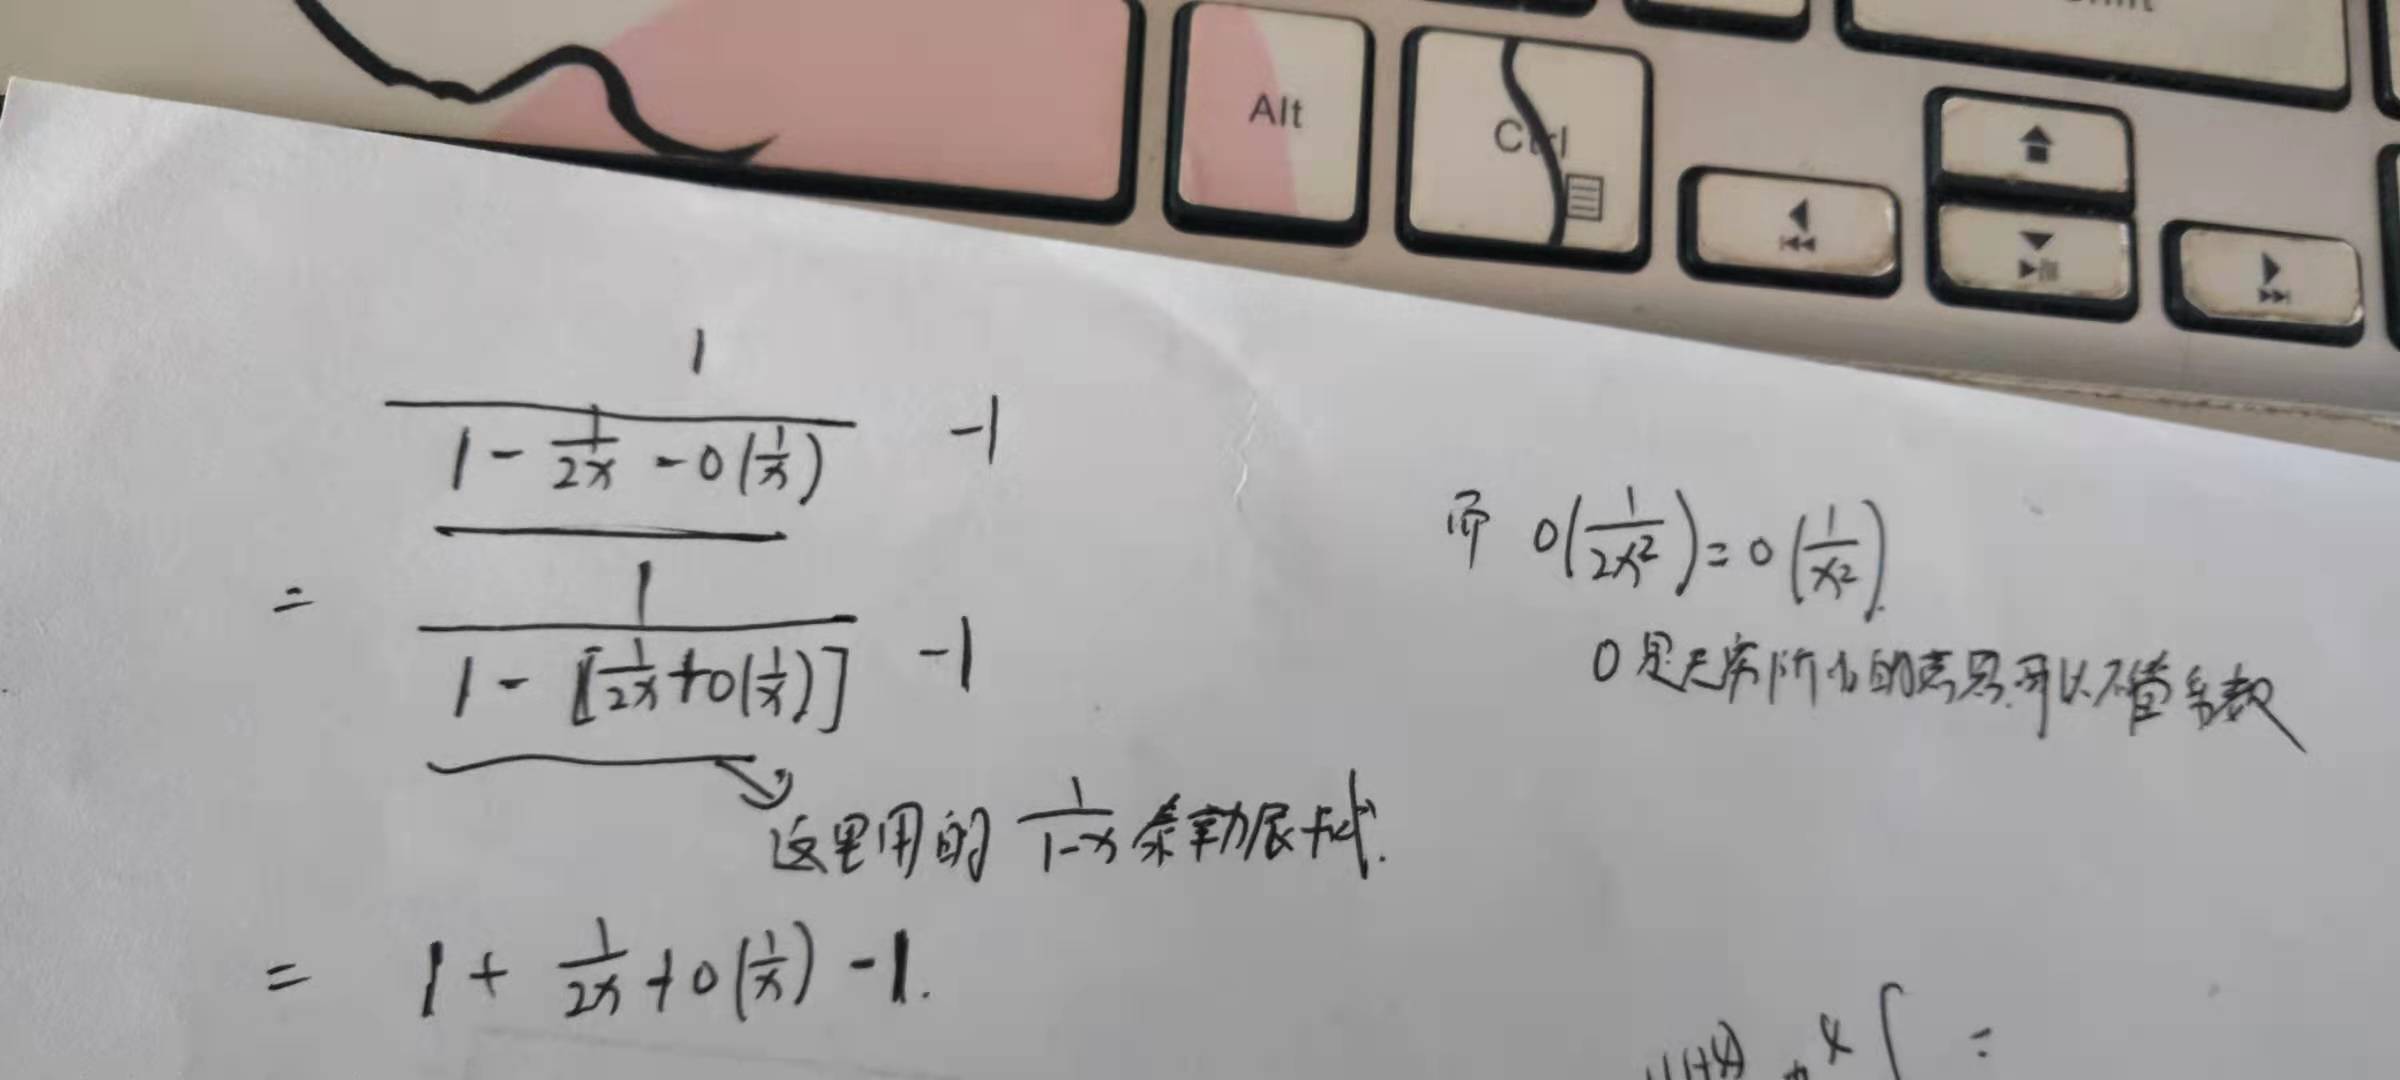 Alt
Ctrl
1/(1 - 1/2x - o(1/x)) - 1
= 1/(1 - [1/2x + o(1/x)]) - 1
这里用的 1/(1-x) 泰勒展开式.
= 1 + 1/2x + o(1/x) - 1.
而 o(1/2x²) = o(1/x²).
o是无穷阶小的意思可以不管系数